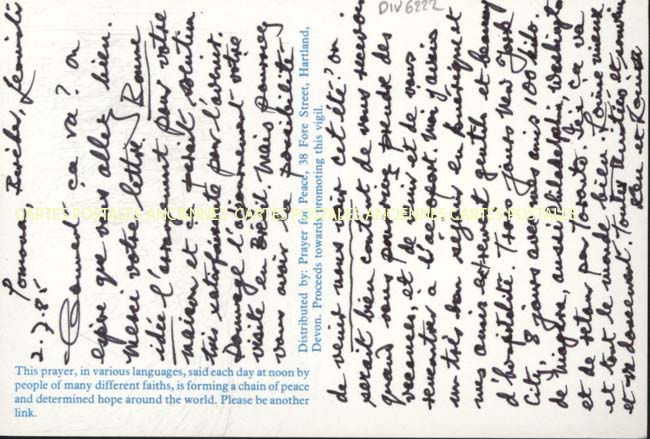 DIV6222
2.7.85
ça va? on
espère que vous allez bien.
Merci votre lettre. Bonne
idée l'arrangement pour votre
maison et ça paraît solution
très satisfaisante pour l'avenir.
visite en Brésil mais pouvez
vous avoir la possibilité
de venir nous voir cet été? on
serait bien content de vous recevoir
quand vous pouviez prendre des
vacances, et de venir et de vous
rencontrer à l'aéroport. Moi j'avais
un très bon séjour en Amérique et
mes amis extrêmement gentils et beaucoup
d'hospitalité. Trois jours New York
City, 8 jours avec mes amis 100 kilo.
aussi Philadelphia, Washington
et de retour par Toronto. Ici ça va
et tout le monde bien.
et se doucement. Toutes Amitiés et
CARTES POSTALES ANCIENNES CARTES POSTALES ANCIENNES CARTES POSTALES
Distributed by: Prayer for Peace, 38 Fore Street, Hartland,
Devon. Proceeds towards promoting this vigil.
This prayer, in various languages, said each day at noon by
people of many different faiths, is forming a chain of peace
and determined hope around the world. Please be another
link.